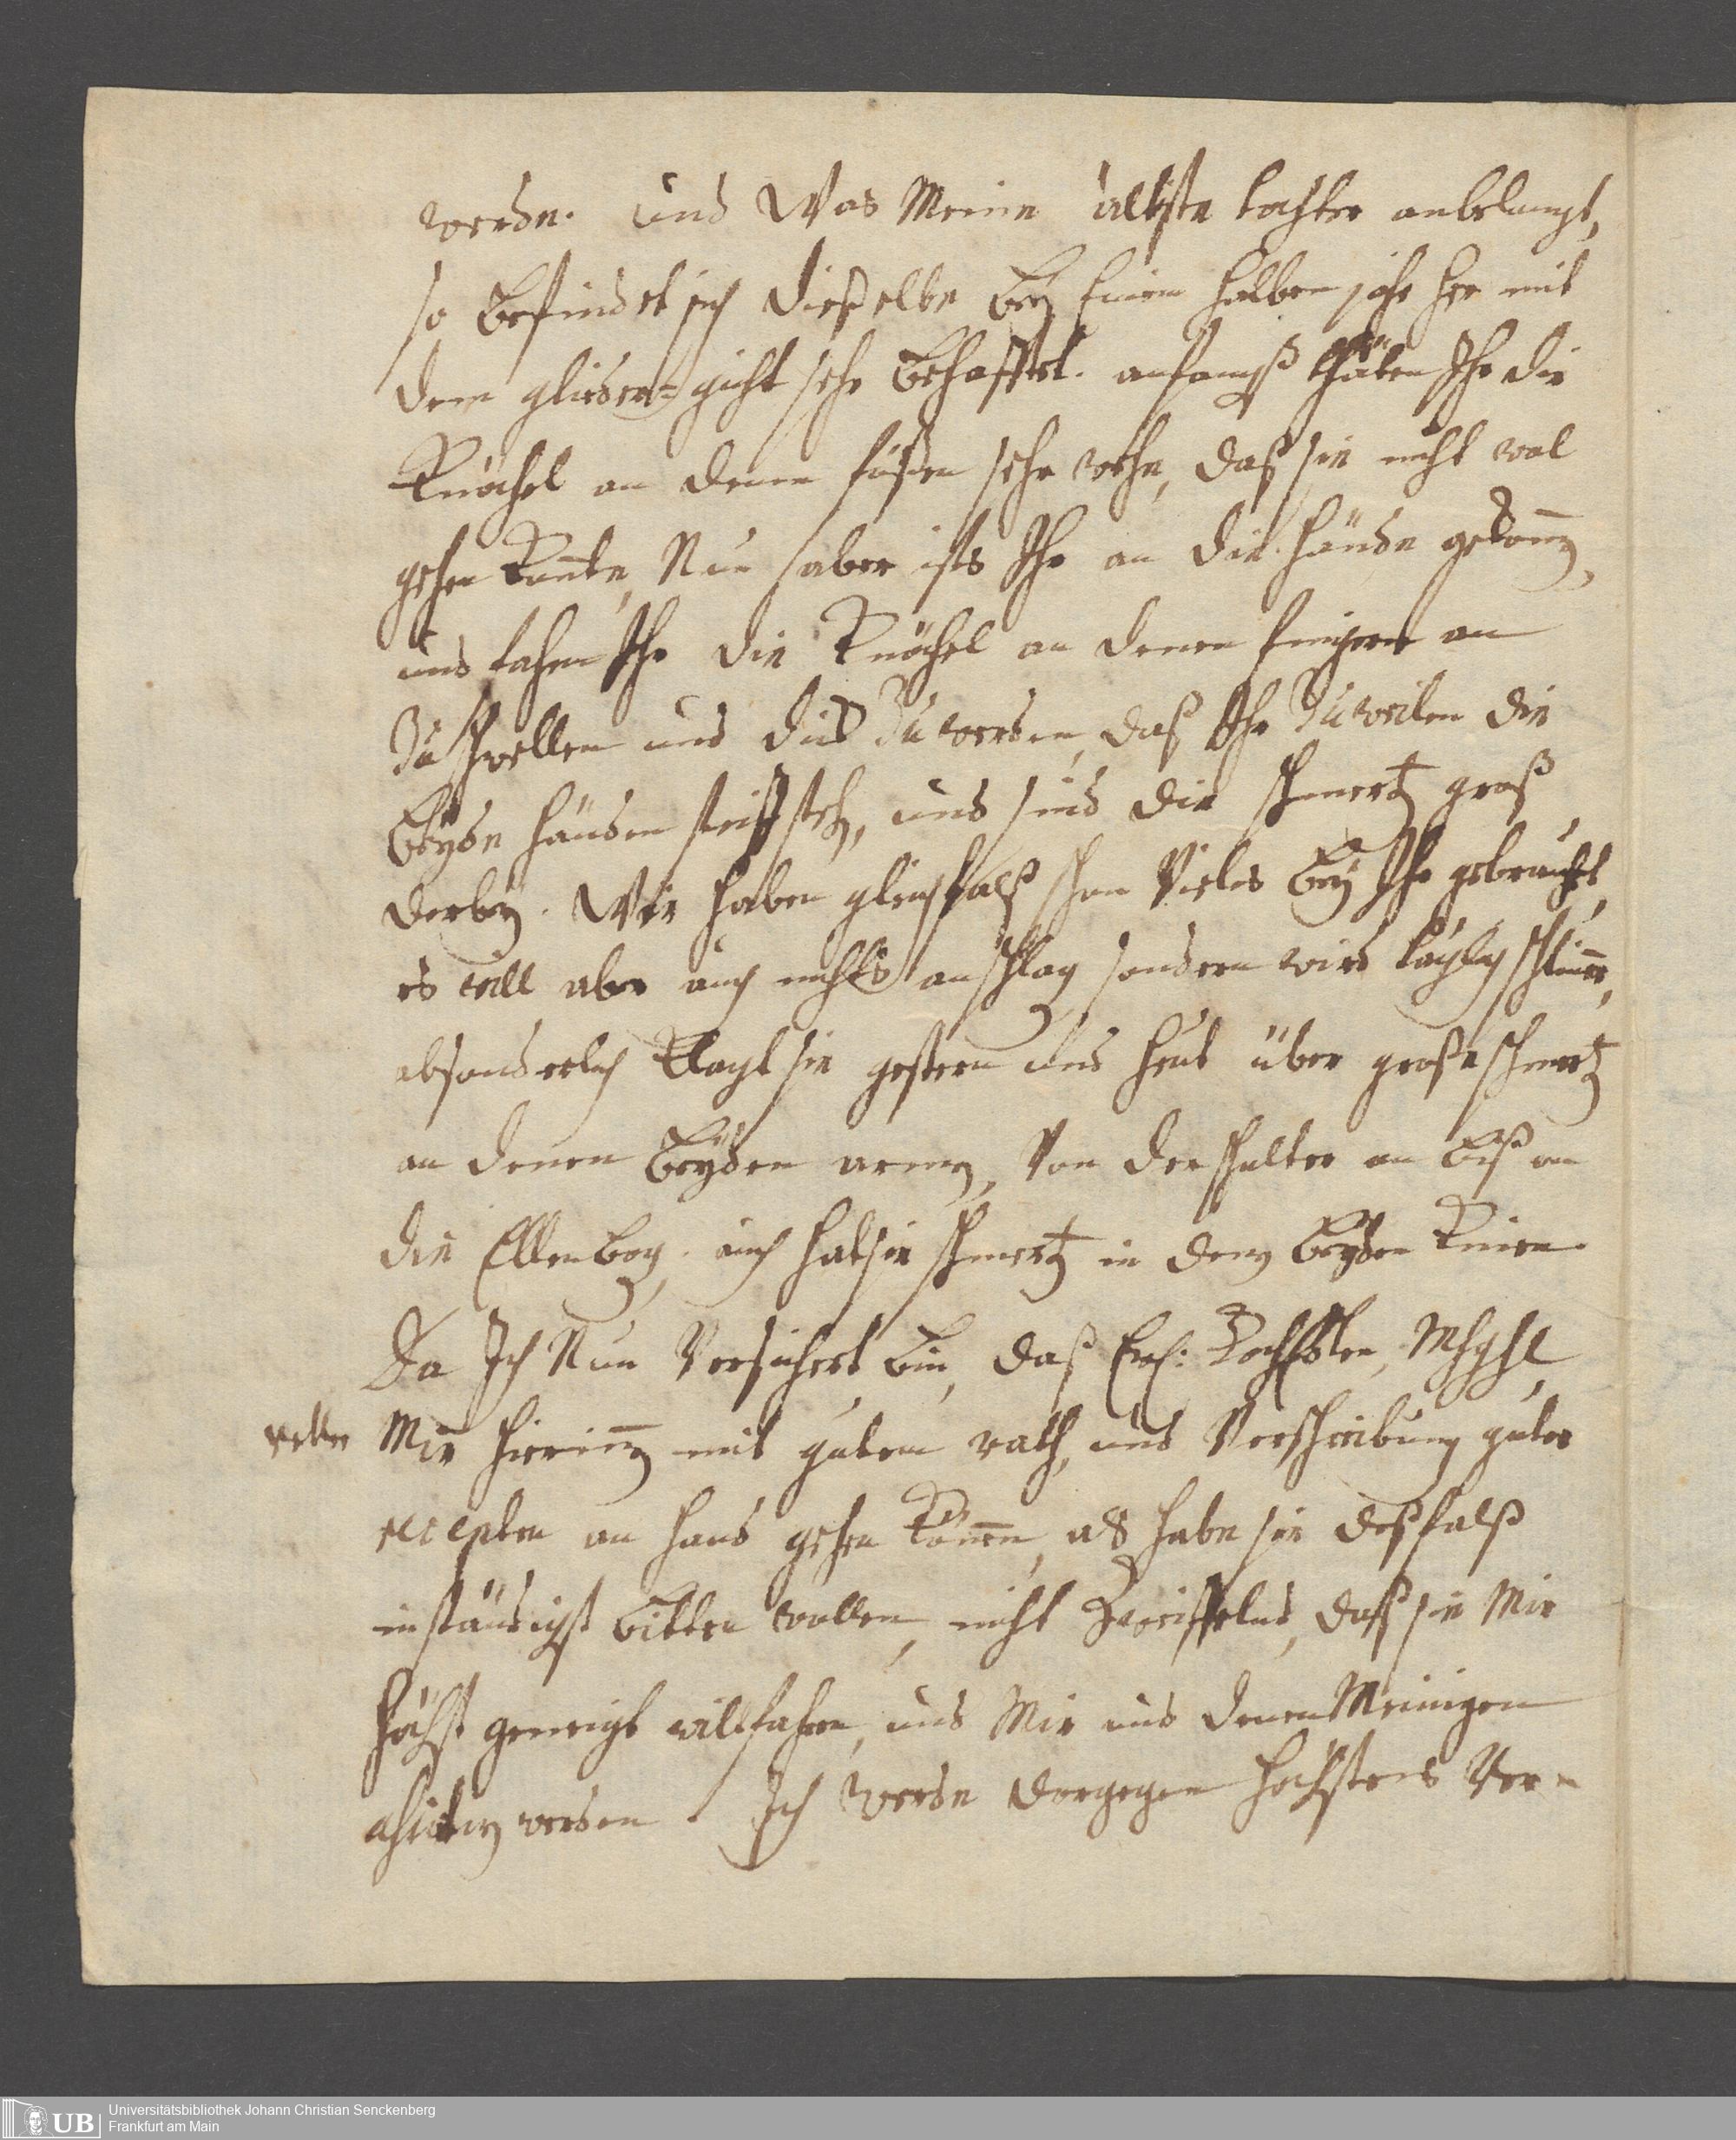 werde. und Was Meine älteste tochter anbelangt,
so befindet sich dießelbe bey Einem halben jahr her mit
dem glieder-gicht sehr behafftet. anfangß thäten Ihr die
Knöchel an denen füßen sehr wehe, daß sie nicht wol
gehen kunte, Nun aber ists Ihr an die hände gekom̄en,
und fahen Ihr die Knöchel an denen fingern an
Zu schwellen und dick Zu werden, daß Ihr Zuweilen die
beyde händen steiff stehen, und sind die schmertzen groß
darbey. Wir haben gleichfalß schon Vieles bey Ihr gebraucht,
es will aber auch nichts anschlagen sondern wird täglich schlim̄er,
absonderlich klagt sie gestern und heut über große schmertzen
an denen beyden armen, Von der schulter an biß an
die Ellenbogen, auch hat sie schmertzen in denen beyden Knien.
Da Ich Nun Versichert bin, daß
Mir hierin̄en mit gutem rath, und Verschreibung guter
recepten an hand gehen kön̄en, als habe sie deßfalß
inständigst bitten wollen, nicht Zweiffelnd, daß sie Mir
höchst geneigt willfahren, und Mir und denen Meinigen
werden. Ich werde dargegen höchstens Ver-
Universitätsbibliothek Johann Christian Senckenberg
Frankfurt am Main
UB